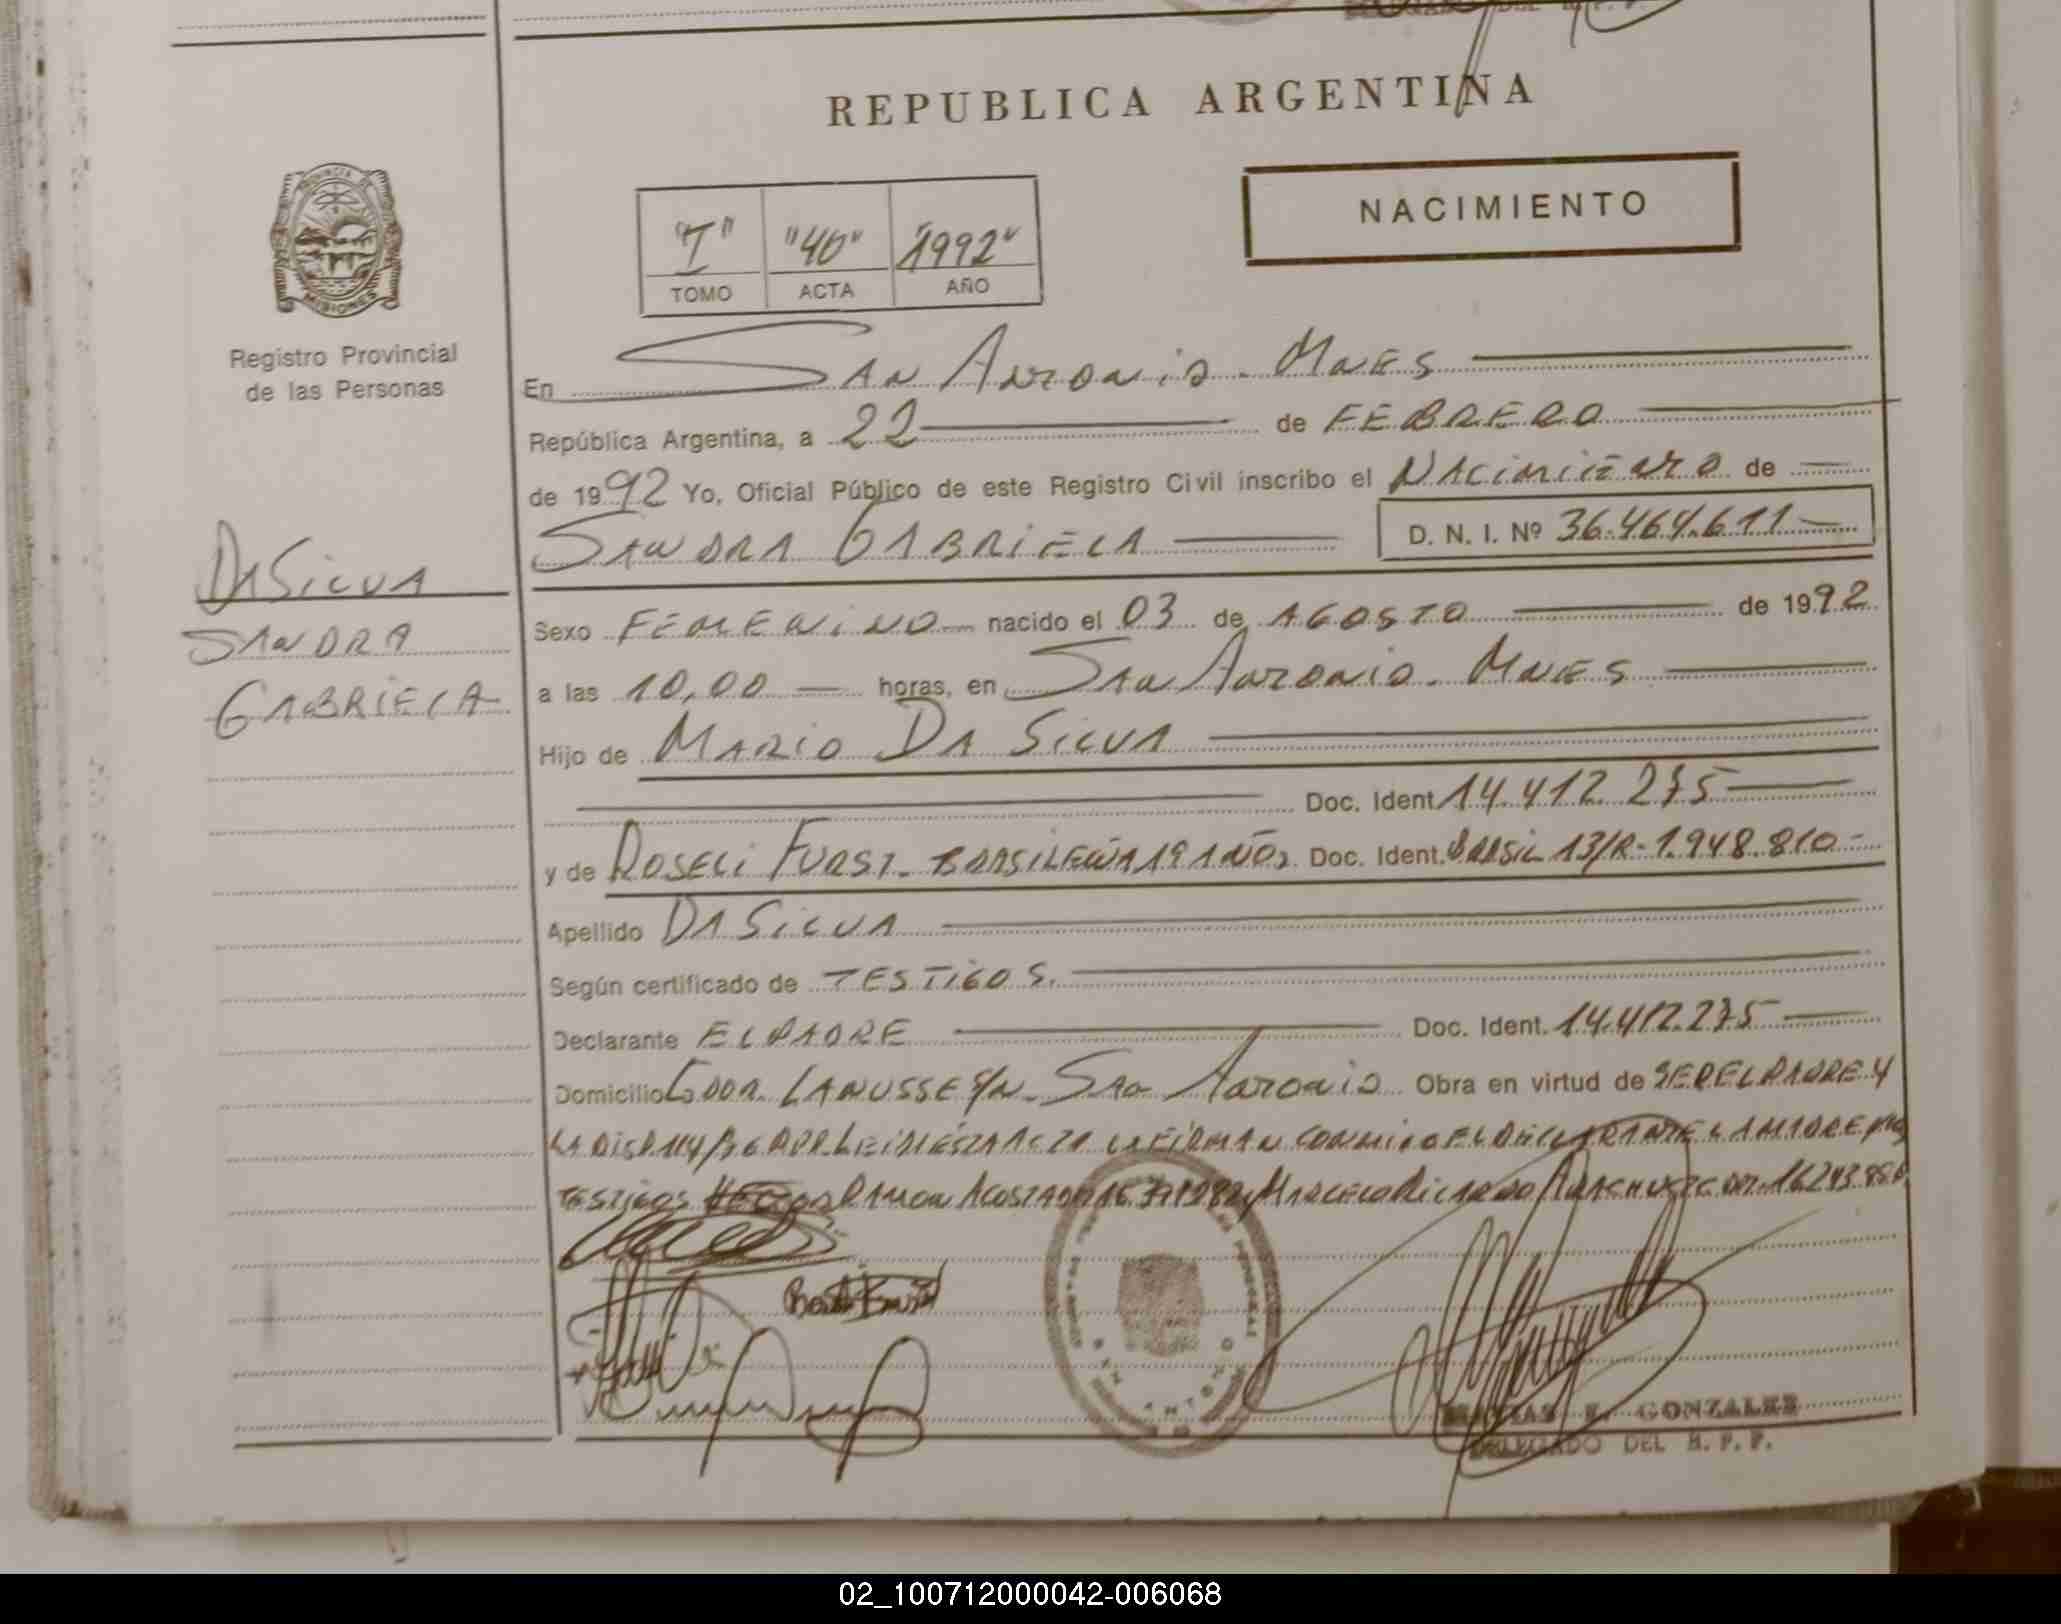 REPUBLICA ARGENTINA
NACIMIENTO
"I" "40" "1992"
TOMO ACTA AÑO
PROVINCIA DE MISIONES
Registro Provincial
de las Personas
En SAN ANTONIO - MNES
República Argentina, a 22 de FEBRERO
de 1992 Yo, Oficial Público de este Registro Civil inscribo el NACIMIENTO de
SANDRA GABRIELA D. N. I. Nº 36.464.611
DA SILVA
SANDRA
GABRIELA
Sexo FEMENINO nacido el 03 de AGOSTO de 1992
a las 10,00 horas, en SAN ANTONIO - MNES
Hijo de MARIO DA SILVA
Doc. Ident. 14.412.275
y de ROSELI FURST - BRASILEÑA 19 AÑOS Doc. Ident. BRASIL 13/R-1.948.810
Apellido DA SILVA
Según certificado de TESTIGOS
Declarante EL PADRE Doc. Ident. 14.412.275
Domicilio GDOR. LANUSSE S/N - SAN ANTONIO Obra en virtud de SER EL PADRE Y
LA DISP. LEIDA ESTA ACTA LA FIRMAN CONMIGO EL DECLARANTE LA MADRE
TESTIGOS RAMON ACOSTA MARCELO RICARDO
GONZALEZ
DELEGADO DEL R. P. P.
02_100712000042-006068